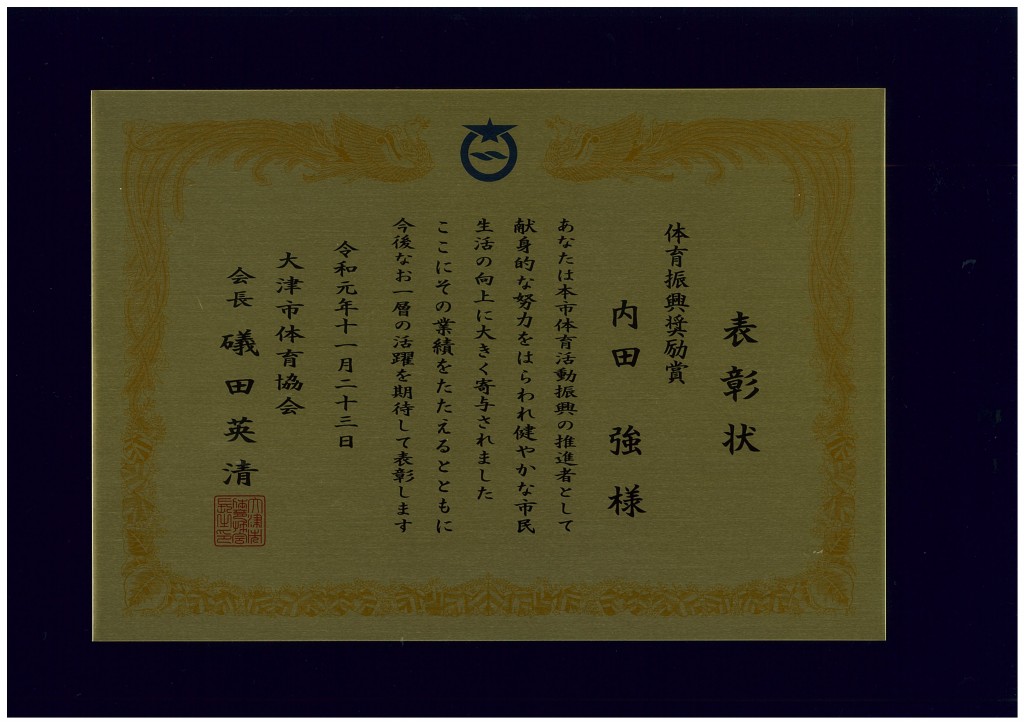 表彰状
体育振興奨励賞
内田 強 様
あなたは本市体育活動振興の推進者として
献身的な努力をはらわれ健やかな市民
生活の向上に大きく寄与されました
ここにその業績をたたえるとともに
今後なお一層の活躍を期待して表彰します
令和元年十一月二十三日
大津市体育協会
会長 礒田英清